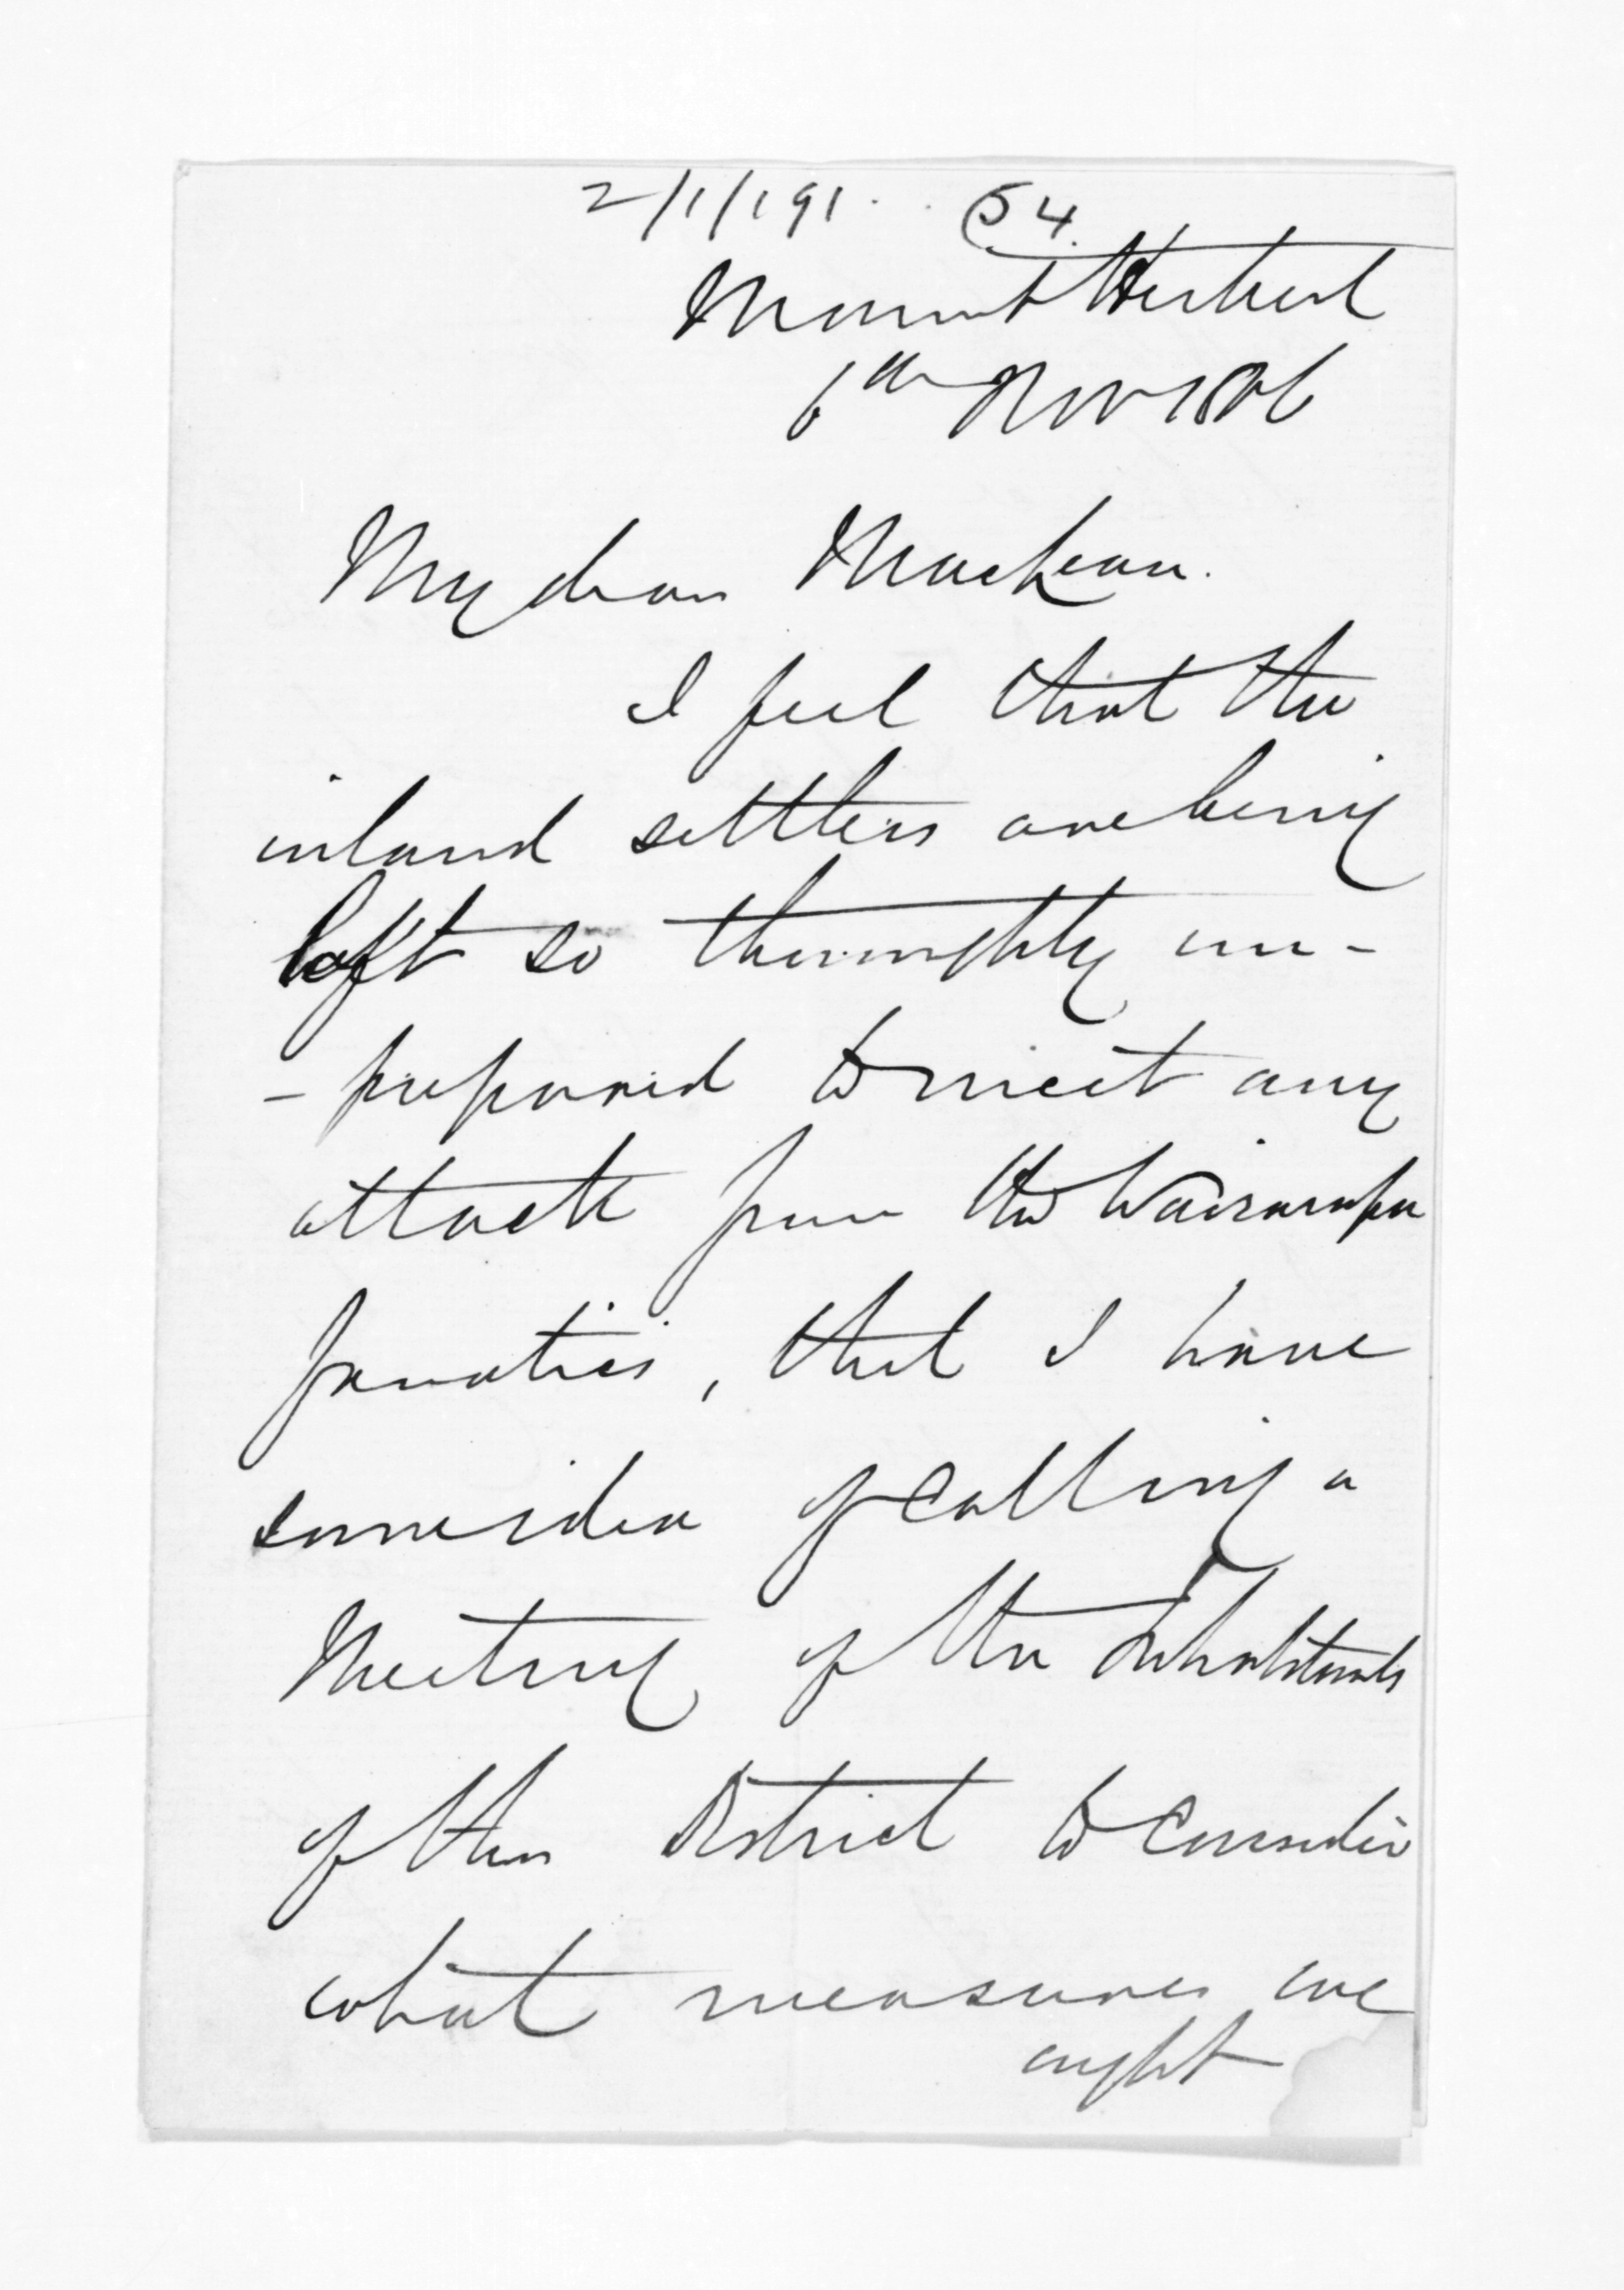 2/1/191. 54.
Mount Herbert
6th Nov 1866
My dear MacLean.
I feel that the
inland settlers are being
left so thoroughly un-
- prepared to meet any
attack from the Wairarapa
fanatics, that I have
some idea of calling a
Meeting of the Inhabitants
of this District to consider
what measures we
ought